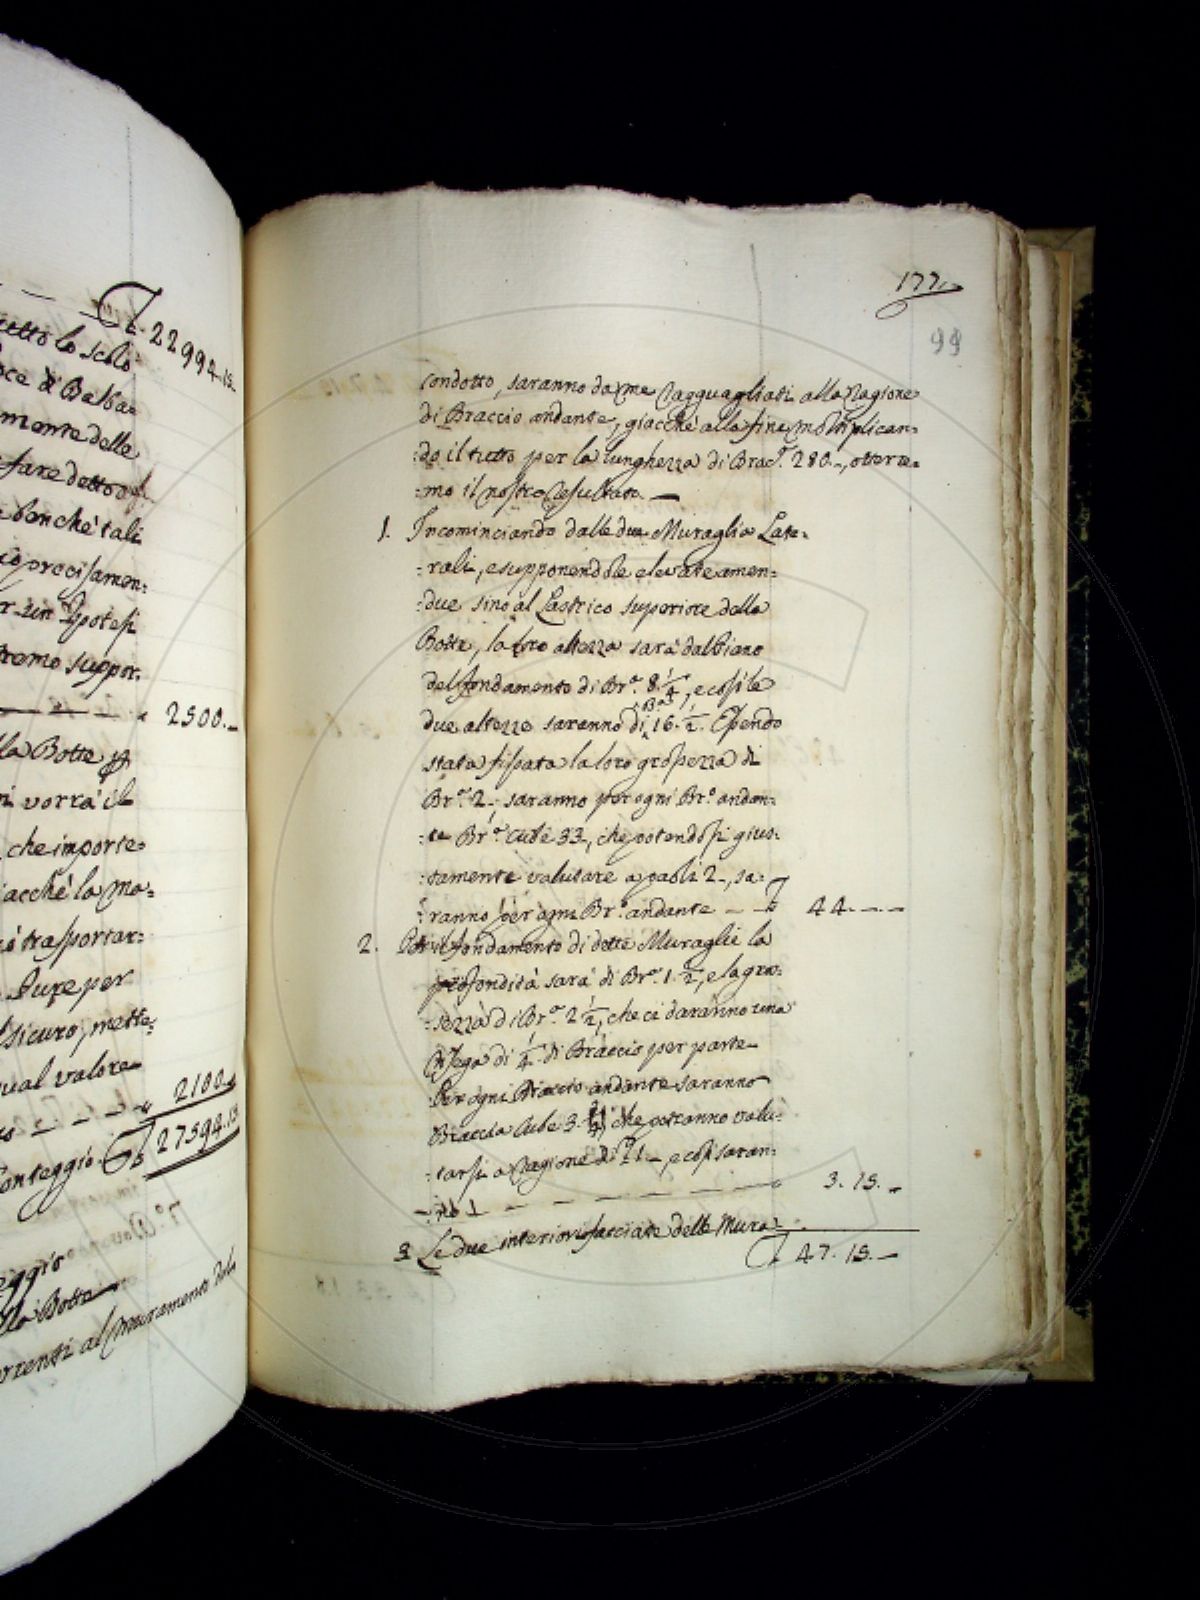 L. 22994. 15.
tutto lo scolo
oce di Balba=
mente della
fare detto
benchè tali
precisamen=
r un Ipotesi
tremo suppor.
2500. _
la Botte
ri vorrà il
che importe=
iacchè la ma=
trasportar=
Pure per
sicuro, mette=
qual valore
2100.
Conteggio. L. 27594. 15
eggio
lla Botte
orrenti al Muramento della
177.
99
condotto, saranno da me ragguagliati alla ragione
di Braccio andante, giacchè alla fine moltiplican=
:do il tutto per la lunghezza di Brac.ᵃ 280._, otterre=
:mo il nostro resultato. _
1. Incominciando dalle due Muraglie Late=
:rali, e supponendole elevate amen=
:due sino al Lastrico superiore della
Botte, la loro altezza sarà dal Piano
del fondamento di Br.ᵃ 8. 1/4, e così le
due altezze saranno di Br.ᵃ 16. 1/2. Essendo
stata fissata la loro grossezza di
Br.ᵃ 2_, saranno per ogni Br.º andan=
:te Br.ᵃ Cube 33_, che potendosi gius=
:tamente valutare a paoli 2_, sa=
:ranno per ogni Br.º andante _ _ L 44. _ _
2. Per il fondamento di dette Muraglie la
profondità sarà di Br.ᵃ 1. 1/2, e la gros=
:sezza di Br.ᵃ 2 1/2, che ci daranno una
Risega di 1/4 di Braccio per parte
Per ogni Braccio andante saranno
Braccia Cube 3. che potranno valu=
:tarsi a ragione di L 1_, e così saran=
:no L _ _ _ _ _ 3. 15. _
3. Le due interiori facciate delle Mura=
L. 47. 15. _